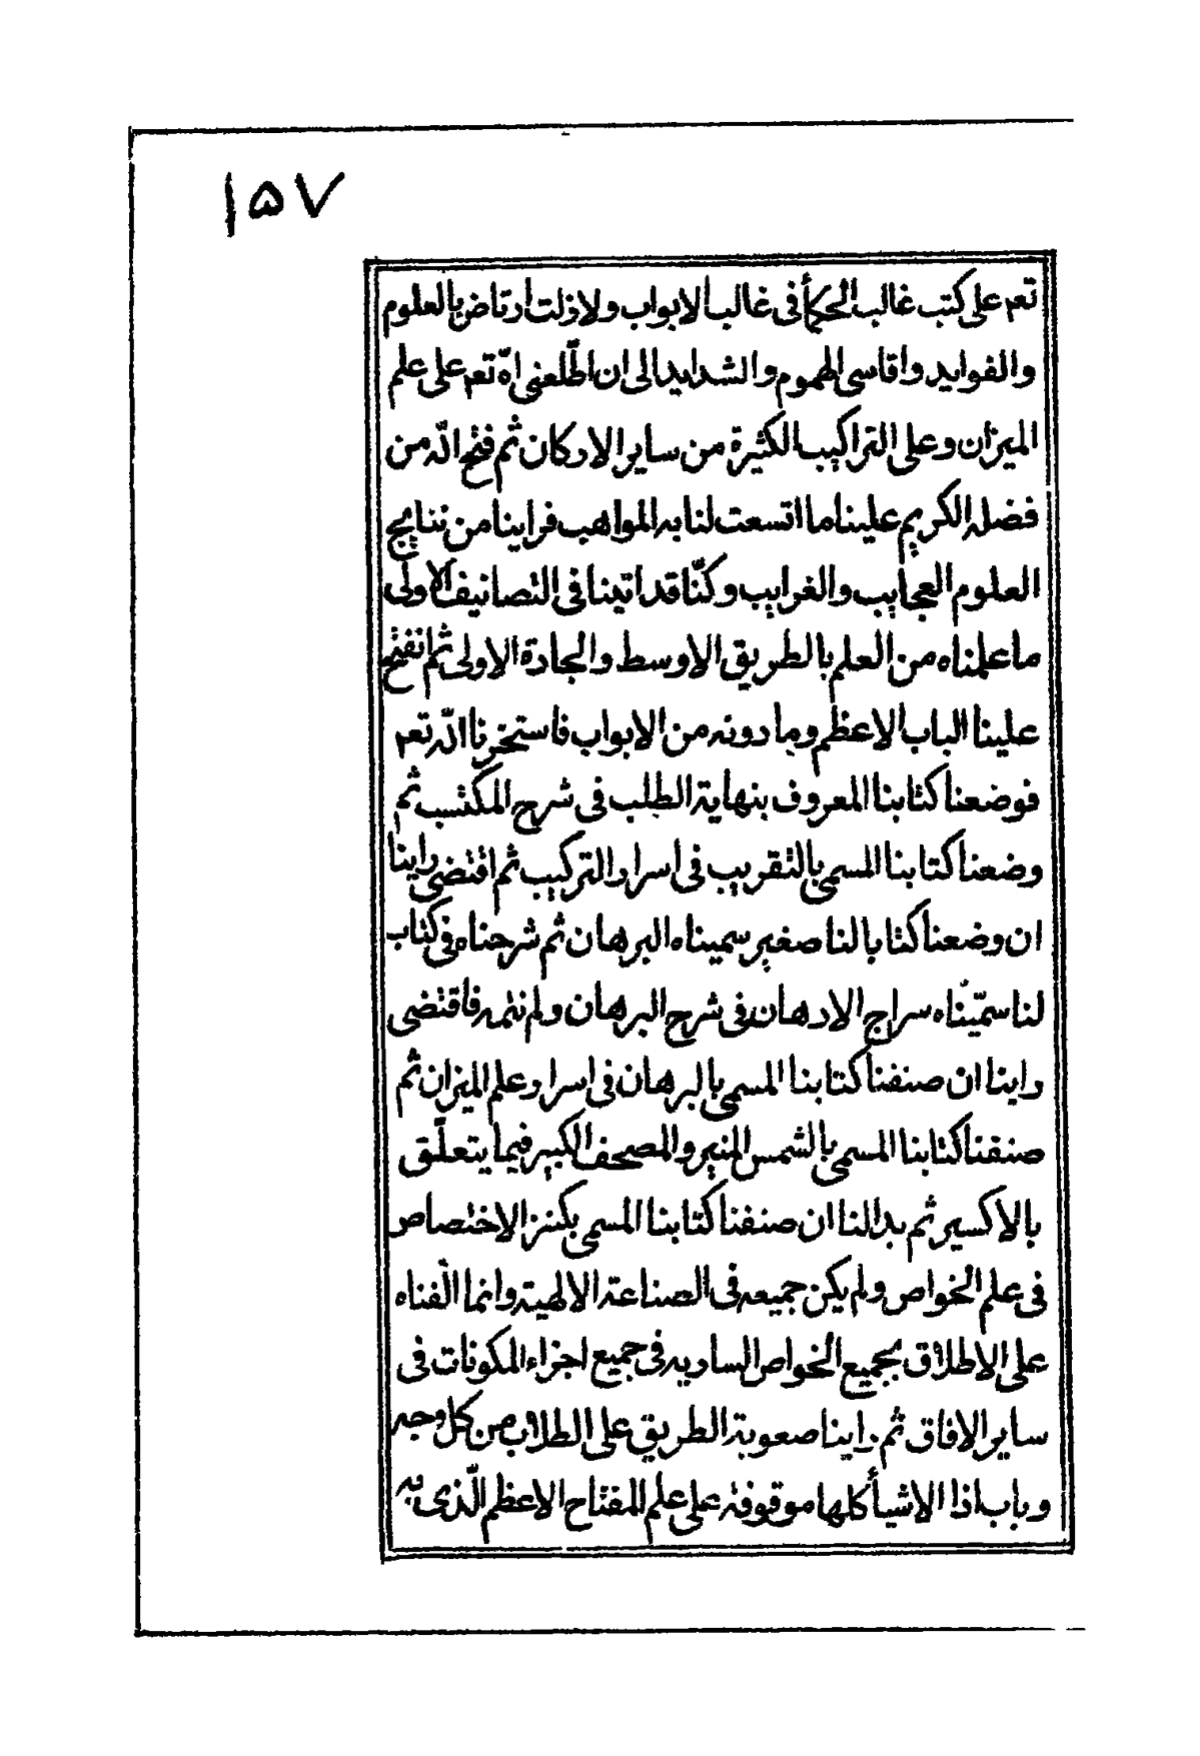 ١٥٧
تعم على كتب غالب الحكمأ فى غالب الابواب ولازلت ارتاض بالعلوم
والفوايد واقاسى الهموم والشدايد الى ان اطّلعنى اللّه تعم على علم
الميزان وعلى التراكيب الكثيرة من ساير الاركان ثم فتح اللّه من
فضله الكريم علينا ما اتسعت لنا به المواهب فراينا من نتايج
العلوم العجايب والغرايب وكنّا قد اتينا فى التصانيف الاولى
ما علمناه من العلم بالطريق الاوسط والجادة الاولى ثم انفتح
علينا الباب الاعظم وما دونه من الابواب فاستخرنا اللّه تعم
فوضعنا كتابنا المعروف بنهاية الطلب فى شرح المكتسب ثم
وضعنا كتابنا المسمى بالتقريب فى اسرار التركيب ثم اقتضى راينا
ان وضعنا كتابا لنا صغير سميناه البرهان ثم شرحناه فى كتاب
لنا سمّيناه سراج الادهان فى شرح البرهان ولم نتمه فاقتضى
راينا ان صنفنا كتابنا المسمى بالبرهان فى اسرار علم الميزان ثم
صنفنا كتابنا المسمى بالشمس المنير والمصحف الكبير فيما يتعلّق
بالاكسير ثم بدا لنا ان صنفنا كتابنا المسمى بكنز الاختصاص
فى علم الخواص ولم يكن جميعه فى الصناعة الالهية وانما الّفناه
على الاطلاق بجميع الخواص الساريه فى جميع اجزاء المكونات فى
ساير الافاق ثم راينا صعوبة الطريق على الطلاب من كل وجه
وباب اذا الاشيأ كلها موقوفة على علم المفتاح الاعظم الّذى به